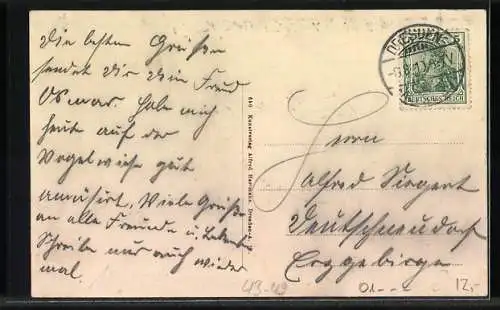 Die besten Grüße
sendet Dir Dein Freund
Osmar. Habe mich
heute auf der
Vogelwiese gut
amüsirt, Viele Grüße
an alle Freunde u.
Schreibe nur auch wieder
mal.
Kunstverlag Alfred Hartmann, Dresden
DRESDEN
5
DEUTSCHES REICH
Herrn
Alfred Siegert
Deutschneudorf
Erzgebirge
43-49
01--
12,-